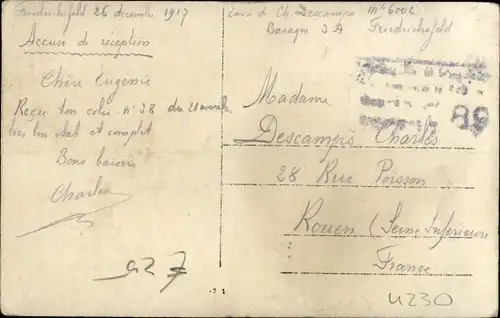 Friedrichsfeld 26 decembre 1917
Accuse de réception
Chère Eugenie
Reçu ton colis n° 38 du 21 novembre
bien bon état et complet
Bons baisers
Charles
927
Envoi d. Ch. Descamps n° 6002
Baraque 3A Friedrichsfeld
98
Madame
Descamps Charles
28 Rue Poisson
Rouen (Seine Inférieure
France
4230